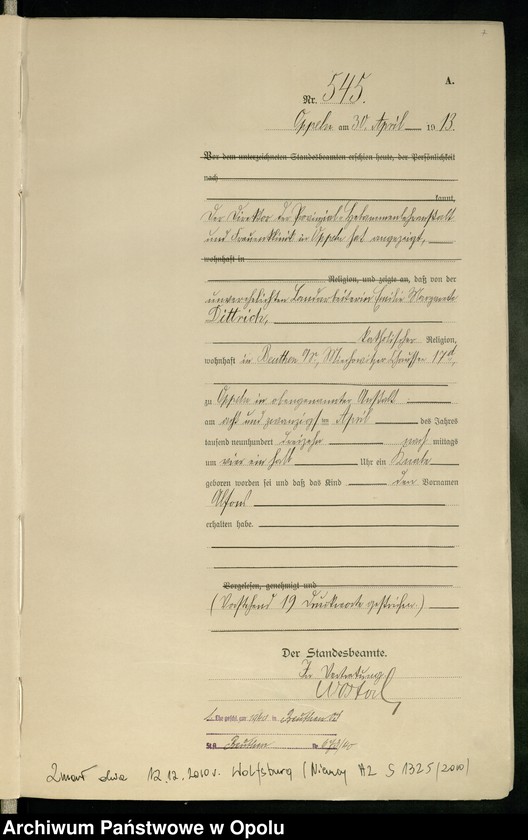 A.
Nr. 545.
Oppeln am 30. April 1913.
Vor dem unterzeichneten Standesbeamten erschien heute, der Persönlichkeit
nach
kannt,
Der Direktor der Provinzial-Hebammenlehranstalt
und Frauenklinik in Oppeln hat angezeigt,
wohnhaft in
Religion, und zeigte an, daß von der
unverehelichten Landarbeiterin Emilie Margarete
Dittrich,
katholischer Religion,
wohnhaft in Beuthen O/S, Miechowitzer Chaussee 17d,
zu Oppeln in obengenannter Anstalt
am acht und zwanzigsten April des Jahres
tausend neunhundert dreizehn nach mittags
um vier ein halb Uhr ein Knabe
geboren worden sei und daß das Kind den Vornamen
Alfons
erhalten habe.
Vorgelesen, genehmigt und
(Vorstehend 19 Druckworte gestrichen.)
Der Standesbeamte.
In Vertretung
1. Ehe geschl. am in Beuthen OS
St.A. Beuthen Nr.
Zmarł dnia 12.12.2010 r. Wolfsburg (Niemcy AZ S 1325/2010)
Archiwum Państwowe w Opolu